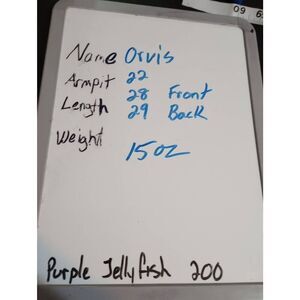 09 6
Name Orvis
Armpit 22
Length 28 Front
29 Back
Weight 15oz
Purple Jellyfish 200